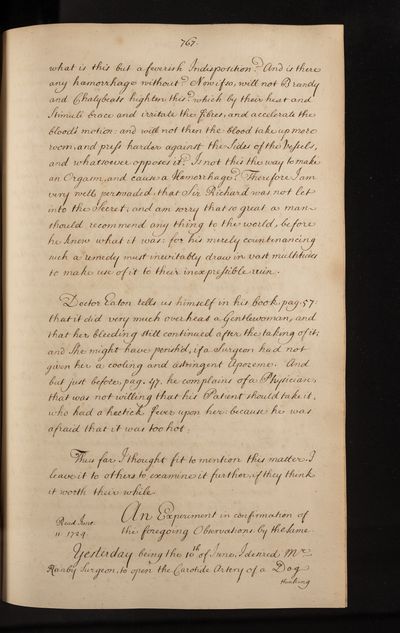 767.
what is this but a feverish Indisposition? And is there
any hamorrhage without? Now if so, will not Brandy
and Chalybeats highten this? which by their heat and
Stimuli brace and irritate the fibres, and accelerate the
bloods motion: and will not then the blood take up more
room, and press harder against the Sides of the Vessels,
and whatsoever opposes it? Is not this the way to make
an Orgasm, and cause a Hamorrhage? Therefore I am
very well perswaded, that Sir Richard was not let
into the Secret; and am sorry that so great a man
should recommend any thing to the world, before
he knew what it was: for his merely countenancing
such a remedy must inevitably draw in vast multitudes
to make use of it to their inexpressible ruin.
Doctor Eaton tells us himself in his book, pag. 57.
that it did very much overheat a Gentlewoman, and
that her bleeding still continued after the taking of it;
and she might have perish'd, if a Surgeon had not
given her a cooling and astringent Apozeme. And
but just before, pag. 47. he complains of a Physician,
that was not willing that his Patient should take it,
who had a hectick fever upon her: because he was
afraid that it was too hot.
Thus far I thought fit to mention this matter. I
leave it to others to examine it further, if they think
it worth their while.
An Experiment in confirmation of
Read June
the foregoing Observations by the same.
11 1724
Yesterday being the 10th of June, I desired Mr.
Ranby Surgeon, to open the Carotide Artery of a Dog